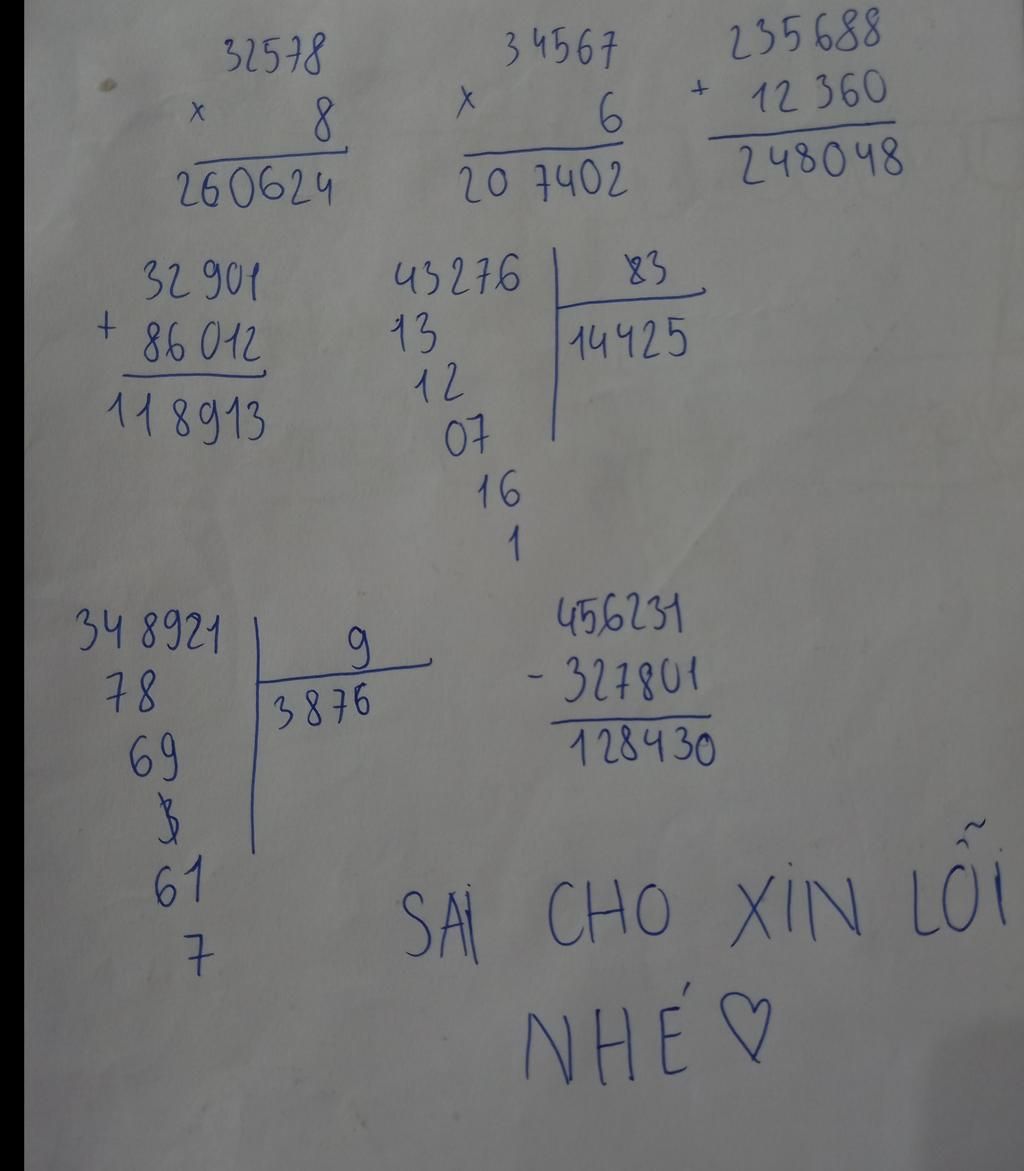 32578
x 8
260624
34567
x 6
207402
235688
+ 12360
248048
32901
+ 86012
118913
43276 3
13 14425
12
07
16
1
348921 9
78 3876
69
61
7
456231
- 327801
128430
SAI CHO XIN LỖI
NHÉ ♡